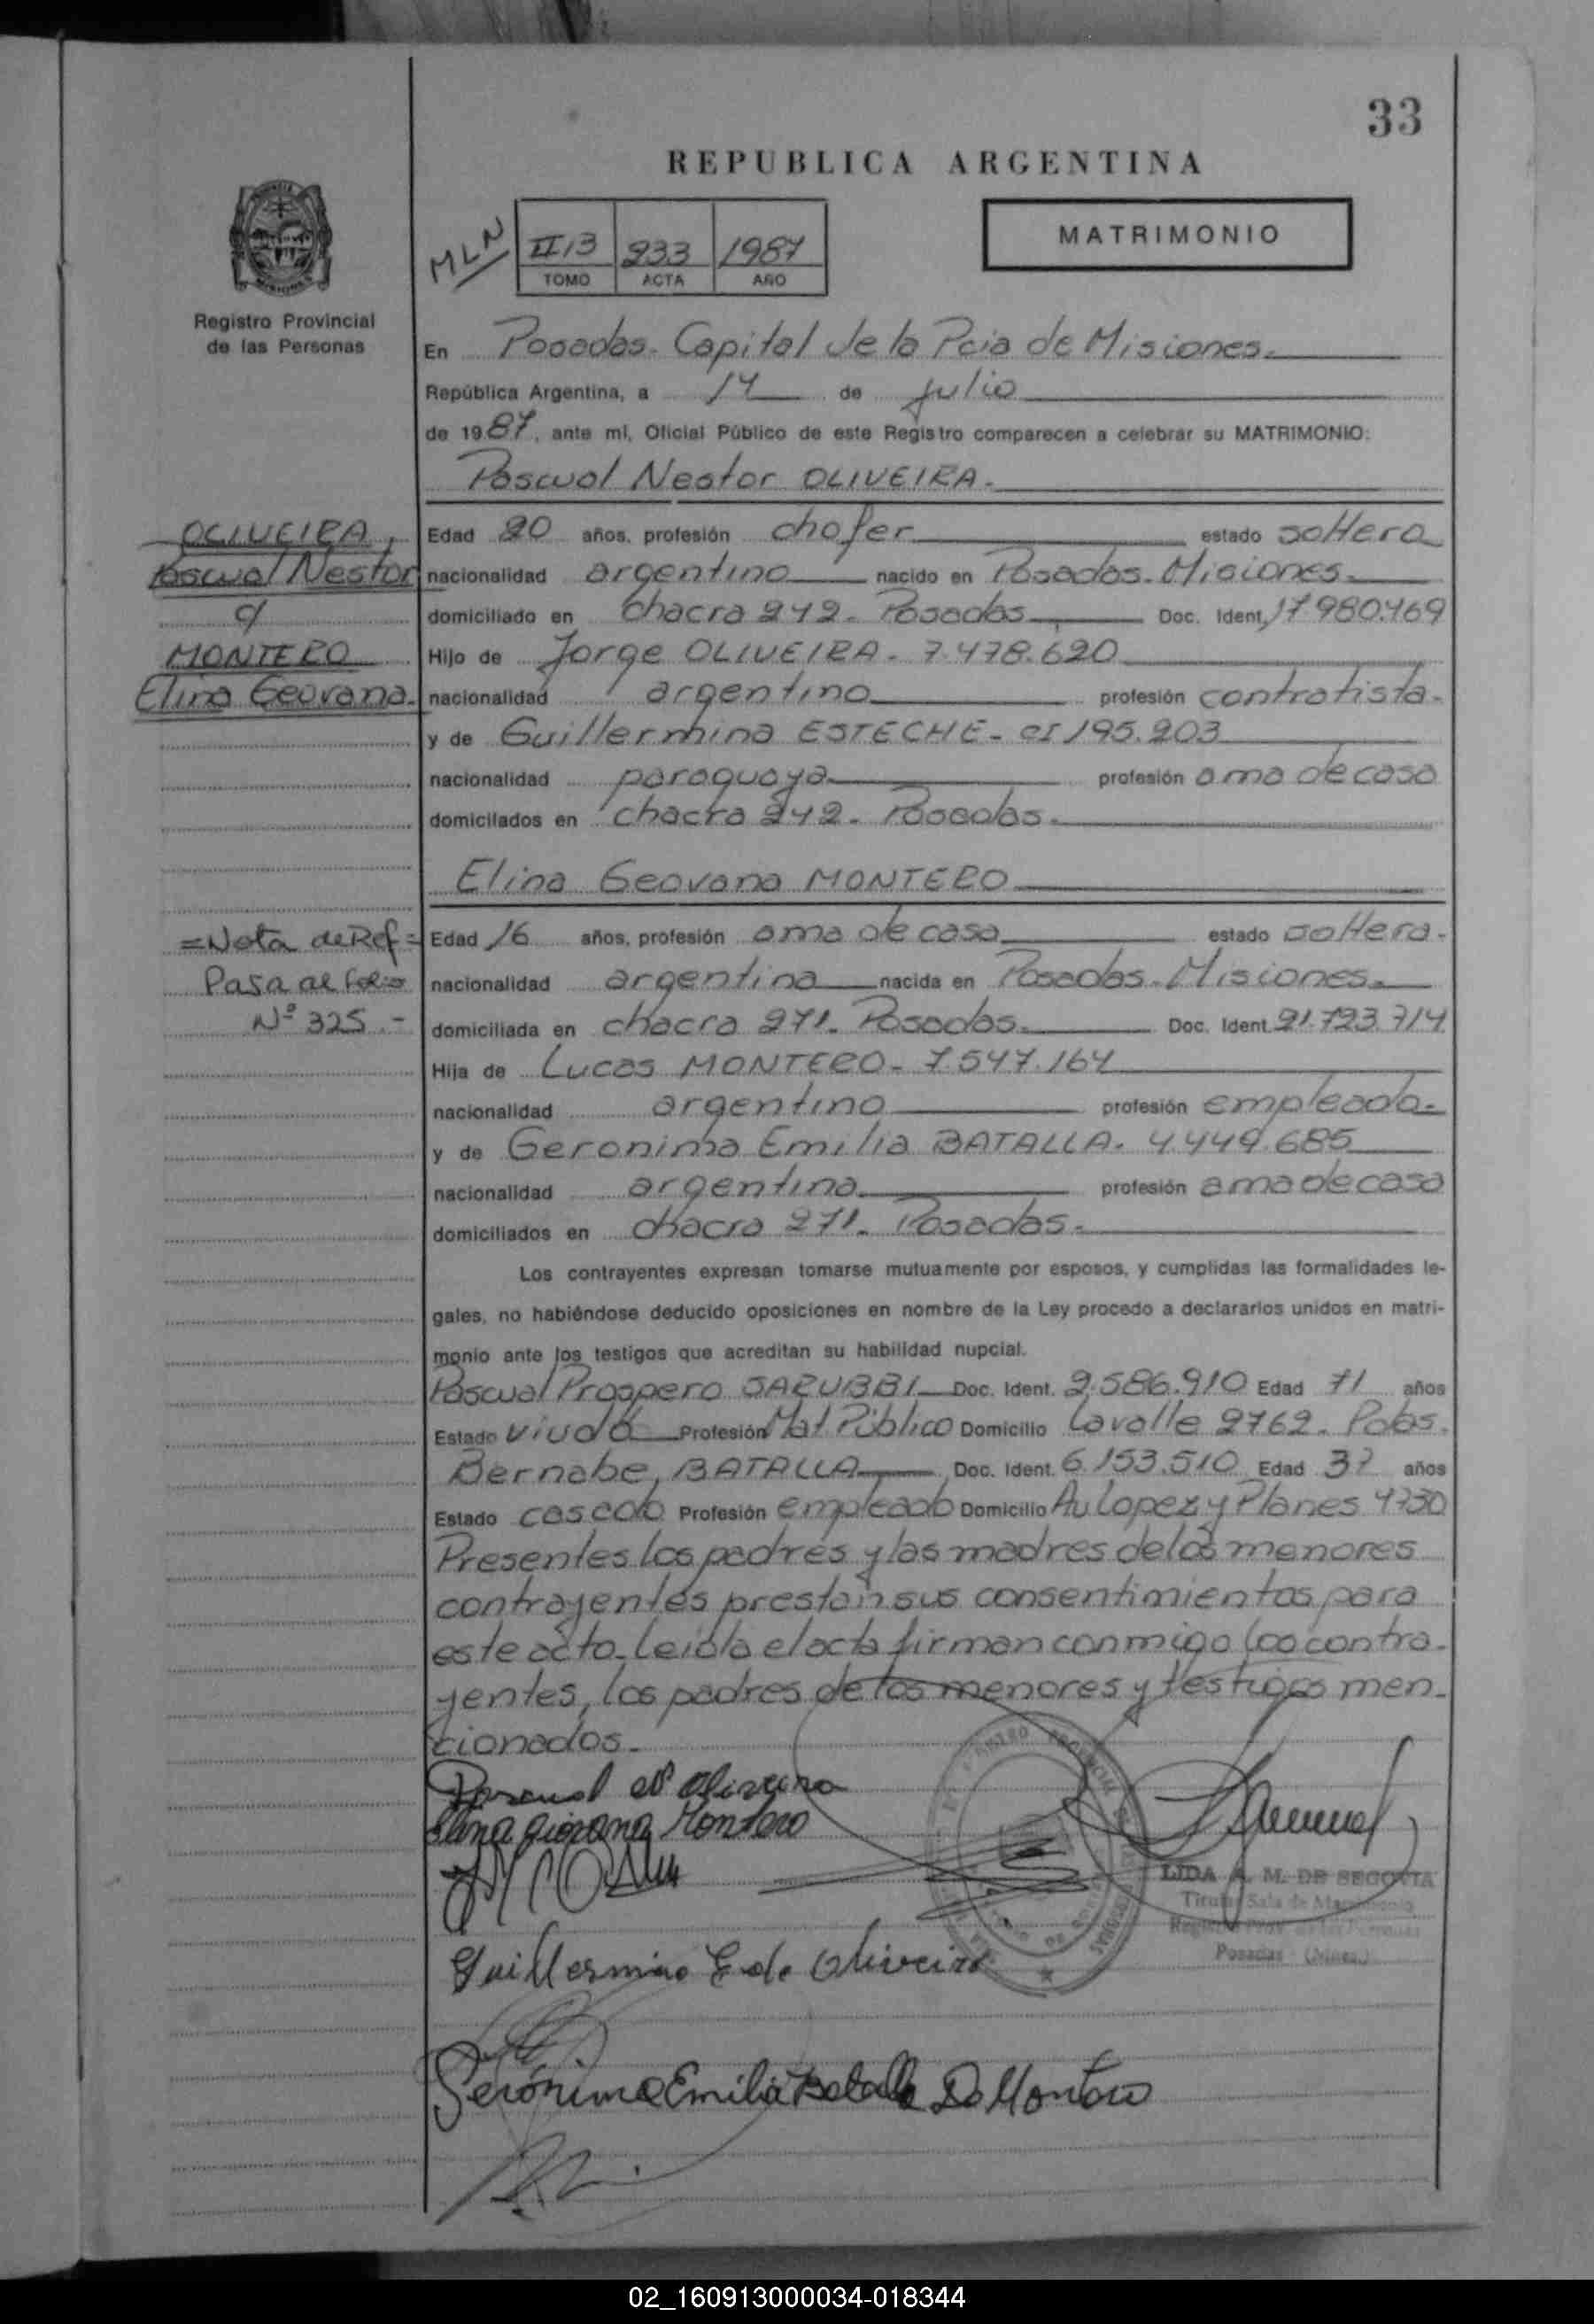 33
REPUBLICA ARGENTINA
MLN
II 13 233 1987
TOMO ACTA AÑO
MATRIMONIO
Registro Provincial
de las Personas
En Posadas. Capital de la Pcia de Misiones.
República Argentina, a 14 de julio
de 1987, ante mí, Oficial Público de este Registro comparecen a celebrar su MATRIMONIO:
Pascual Nestor OLIVEIRA.
OLIVEIRA,
Pascual Nestor
c/
MONTERO
Elina Geovana.
Edad 20 años, profesión chofer estado soltero
nacionalidad argentino nacido en Posadas. Misiones.
domiciliado en chacra 242. Posadas Doc. Ident. 17.980.469
Hijo de Jorge OLIVEIRA. 7.478.620
nacionalidad argentino profesión contratista.
y de Guillermina ESTECHE. CI 195.203
nacionalidad paraguaya profesión ama de casa
domiciliados en chacra 242. Posadas.
Elina Geovana MONTERO
=Nota de Ref=
Pasa al Folio
Nº 325.-
Edad 16 años, profesión ama de casa estado soltera.
nacionalidad argentina nacida en Posadas. Misiones.
domiciliada en chacra 271. Posadas. Doc. Ident. 21.723.714
Hija de Lucas MONTERO. 7.547.164
nacionalidad argentino profesión empleado.
y de Geronima Emilia BATALLA. 4.449.685
nacionalidad argentina profesión ama de casa
domiciliados en chacra 271. Posadas.
Los contrayentes expresan tomarse mutuamente por esposos, y cumplidas las formalidades le-
gales, no habiéndose deducido oposiciones en nombre de la Ley procedo a declararlos unidos en matri-
monio ante los testigos que acreditan su habilidad nupcial.
Pascual Prospero SARUBBI Doc. Ident. 2.586.910 Edad 71 años
Estado viudo Profesión Mat. Público Domicilio Lavalle 2762. Pdas.
Bernabe, BATALLA Doc. Ident. 6.153.510 Edad 37 años
Estado casado Profesión empleado Domicilio Av Lopez y Planes 4730
Presentes los padres y las madres de los menores
contrayentes prestan sus consentimientos para
este acto. Leida el acta firman conmigo los contra-
yentes, los padres de los menores y testigos men-
cionados.
Pascual N Oliveira
Elina Giovana Montero
LIDA A. M. DE SEGOVIA
Titular Sala de Matrimonio
Posadas - (Mnes.)
Guillermina E de Oliveira
Gerónima Emilia Batalla De Montero
02_160913000034-018344